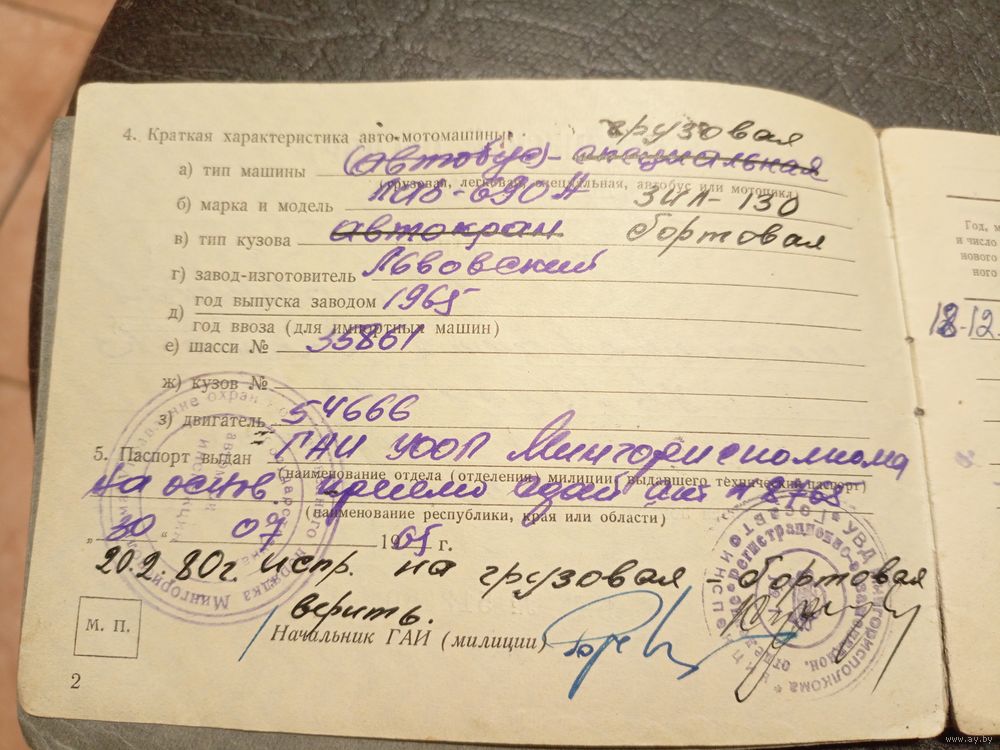 4. Краткая характеристика авто-мотомашины: грузовая
а) тип машины (автобус) - специальная
(грузовая, легковая, специальная, автобус или мотоцикл)
б) марка и модель ЗИЛ-130
в) тип кузова автокран бортовая
г) завод-изготовитель Львовский
д) год выпуска заводом 1965
год ввоза (для импортных машин)
е) шасси № 35861
ж) кузов №
з) двигатель 54666
5. Паспорт выдан ГАИ УООП Мингорисполкома
(наименование отдела (отделения) милиции, выдавшего технический паспорт)
на основ. приемо сдат акт № 8768
(наименование республики, края или области)
„ 30 “ 07 1965 г.
20.2.80г. испр. на грузовая - бортовая
верить.
М. П.
Начальник ГАИ (милиции)
2
Год, м
и число
нового
ного
18-12.
www.ay.by